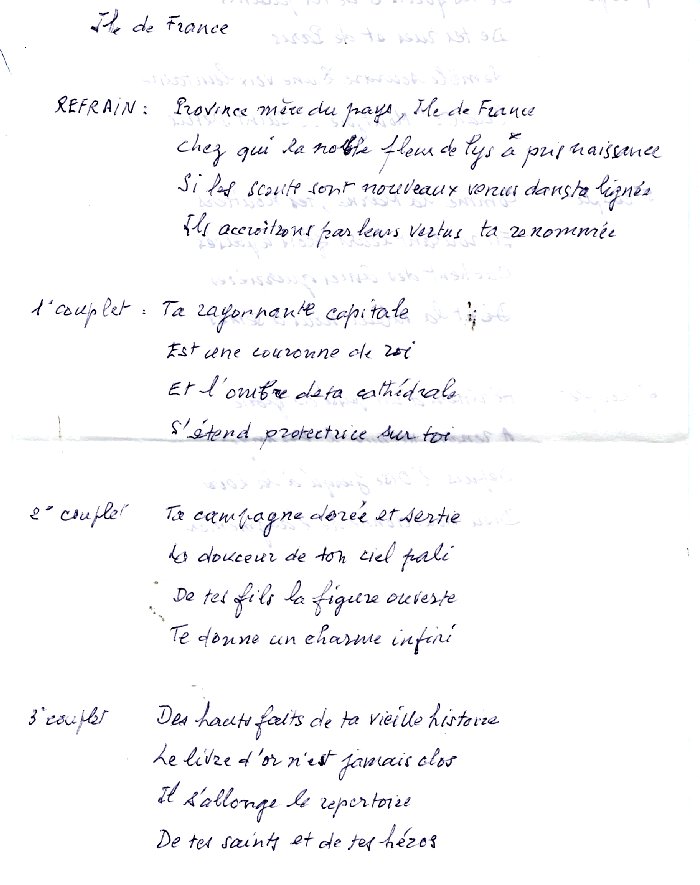 Ile de France
REFRAIN : Province mère du pays, Ile de France
Chez qui la noble fleur de lys à pris naissance
Si les scouts sont nouveaux venus dans ta lignée
Ils accroîtrons par leurs vertus ta renommée
1° couplet : Ta rayonnante capitale
Est une couronne de roi
Et l'ombre de ta cathédrale
S'étend protectrice sur toi
2° couplet Ta campagne dorée et sertie
La douceur de ton ciel pali
De tes fils la figure ouverte
Te donne un charme infini
3° couplet Des hauts faits de ta vieille histoire
Le livre d'or n'est jamais clos
Il s'allonge le repertoire
De tes saints et de tes héros